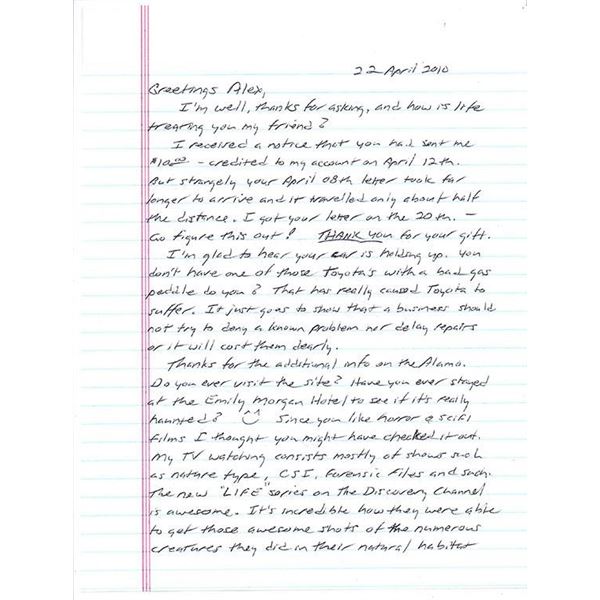 22 April 2010
Greetings Alex,
I'm well, thanks for asking, and how is life
treating you my friend?
I received a notice that you had sent me
$10.00 - credited to my account on April 12th.
But strangely your April 08th letter took far
longer to arrive and it travelled only about half
the distance. I got your letter on the 20th. -
Go figure this out! THANK you for your gift.
I'm glad to hear your car is holding up. You
don't have one of those Toyota's with a bad gas
peddle do you? That has really caused Toyota to
suffer. It just goes to show that a business should
not try to deny a known problem nor delay repairs
or it will cost them dearly.
Thanks for the additional info on the Alamo.
Do you ever visit the site? Have you ever stayed
at the Emily Morgan Hotel to see if it's really
haunted? Since you like horror & scifi
films I thought you might have checked it out.
My TV watching consists mostly of shows such
as nature type, CSI, Forensic Files and such.
The new "LIFE" series on The Discovery Channel
is awesome. It's incredible how they were able
to get those awesome shots of the numerous
creatures they did in their natural habitat